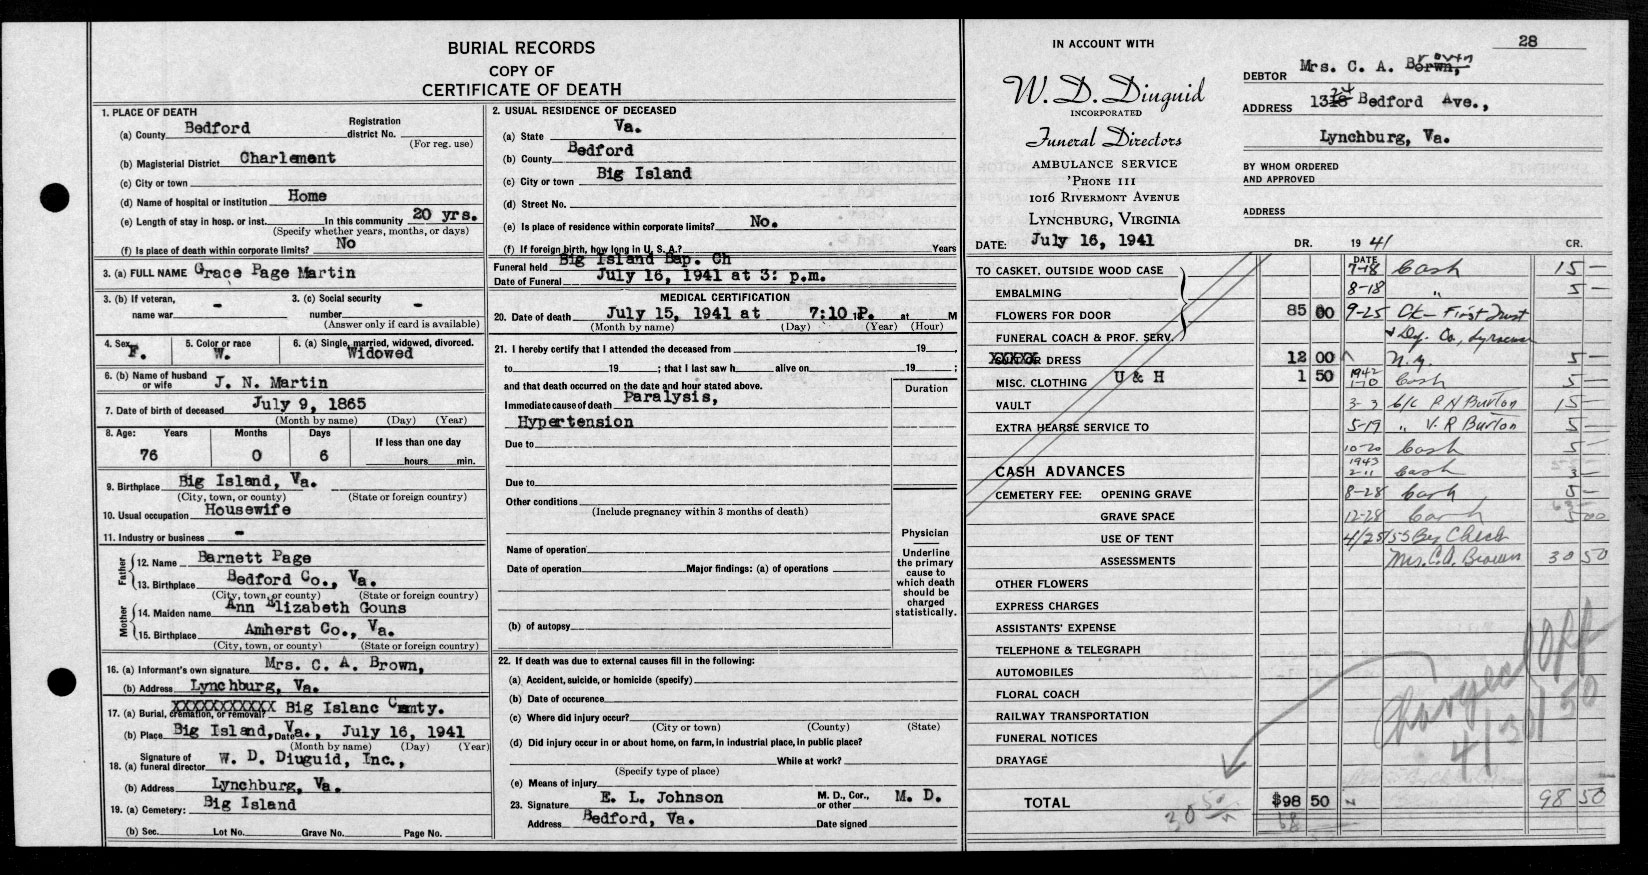 BURIAL RECORDS
COPY OF
CERTIFICATE OF DEATH
1. PLACE OF DEATH
(a) County Bedford Registration district No.
(For reg. use)
(b) Magisterial District Charlement
(c) City or town
(d) Name of hospital or institution Home
(e) Length of stay in hosp. or inst. In this community 20 yrs.
(Specify whether years, months, or days)
(f) Is place of death within corporate limits? No
3. (a) FULL NAME Grace Page Martin
3. (b) If veteran, name war - 3. (c) Social security number -
(Answer only if card is available)
4. Sex F. 5. Color or race W. 6. (a) Single, married, widowed, divorced. Widowed
6. (b) Name of husband or wife J. N. Martin
7. Date of birth of deceased July 9, 1865
(Month by name) (Day) (Year)
8. Age: Years Months Days If less than one day
76 0 6 hours min.
9. Birthplace Big Island, Va.
(City, town, or county) (State or foreign country)
10. Usual occupation Housewife
11. Industry or business -
Father
12. Name Barnett Page
13. Birthplace Bedford Co., Va.
(City, town, or county) (State or foreign country)
Mother
14. Maiden name Ann Elizabeth Gouns
15. Birthplace Amherst Co., Va.
(City, town, or county) (State or foreign country)
16. (a) Informant's own signature Mrs. C. A. Brown,
(b) Address Lynchburg, Va.
17. (a) Burial, cremation, or removal? XXXXXXXXXXX Big Islanc Cemty.
(b) Place Big Island, Va., Date July 16, 1941
(Month by name) (Day) (Year)
18. (a) Signature of funeral director W. D. Diuguid, Inc.,
(b) Address Lynchburg, Va.
19. (a) Cemetery: Big Island
(b) Sec. Lot No. Grave No. Page No.
2. USUAL RESIDENCE OF DECEASED
(a) State Va.
(b) County Bedford
(c) City or town Big Island
(d) Street No.
(e) Is place of residence within corporate limits? No.
(f) If foreign birth, how long in U. S. A.? Years
Funeral held Big Island Bap. Ch
Date of Funeral July 16, 1941 at 3: p.m.
MEDICAL CERTIFICATION
20. Date of death July 15, 1941 at 7:10 P. at M
(Month by name) (Day) (Year) (Hour)
21. I hereby certify that I attended the deceased from 19 ,
to 19 ; that I last saw h alive on 19 ;
and that death occurred on the date and hour stated above. Duration
Immediate cause of death Paralysis,
Hypertension
Due to
Due to
Other conditions
(Include pregnancy within 3 months of death)
Name of operation
Date of operation Major findings: (a) of operations
(b) of autopsy
Physician
Underline the primary cause to which death should be charged statistically.
22. If death was due to external causes fill in the following:
(a) Accident, suicide, or homicide (specify)
(b) Date of occurence
(c) Where did injury occur?
(City or town) (County) (State)
(d) Did injury occur in or about home, on farm, in industrial place, in public place?
While at work?
(Specify type of place)
(e) Means of injury
23. Signature E. L. Johnson M. D., Cor., or other M. D.
Address Bedford, Va. Date signed
28
IN ACCOUNT WITH
W. D. Diuguid
INCORPORATED
Funeral Directors
AMBULANCE SERVICE
'PHONE 111
1016 RIVERMONT AVENUE
LYNCHBURG, VIRGINIA
DEBTOR Mrs. C. A. Brown
ADDRESS 1324 Bedford Ave.,
Lynchburg, Va.
BY WHOM ORDERED AND APPROVED
ADDRESS
DATE: July 16, 1941 DR. 1941 CR.
DATE
TO CASKET, OUTSIDE WOOD CASE 7-18 Cash 15 —
EMBALMING 8-18 " 5 —
FLOWERS FOR DOOR 85 00 9-25 Ck - First Trust
FUNERAL COACH & PROF. SERV. & Dep. Co., Syracuse
XXXXX OR DRESS 12 00 N.Y. 5 —
MISC. CLOTHING U & H 1 50 1942 1-10 Cash 5 —
VAULT 3-3 b/c P. H Burton 15 —
EXTRA HEARSE SERVICE TO 5-19 " V. R Burton 5 —
10-20 Cash 5 —
CASH ADVANCES 1943 2-11 Cash 3 —
CEMETERY FEE: OPENING GRAVE 8-28 Cash 5 —
GRAVE SPACE 12-28 Cash 5 00
USE OF TENT 4/25/55 By Check
ASSESSMENTS Mrs. C.A. Brown 30 50
OTHER FLOWERS
EXPRESS CHARGES
ASSISTANTS' EXPENSE
TELEPHONE & TELEGRAPH
AUTOMOBILES
FLORAL COACH
RAILWAY TRANSPORTATION
FUNERAL NOTICES
DRAYAGE
Charged Off
4/30/50
TOTAL $98 50 98 50
30 50
68